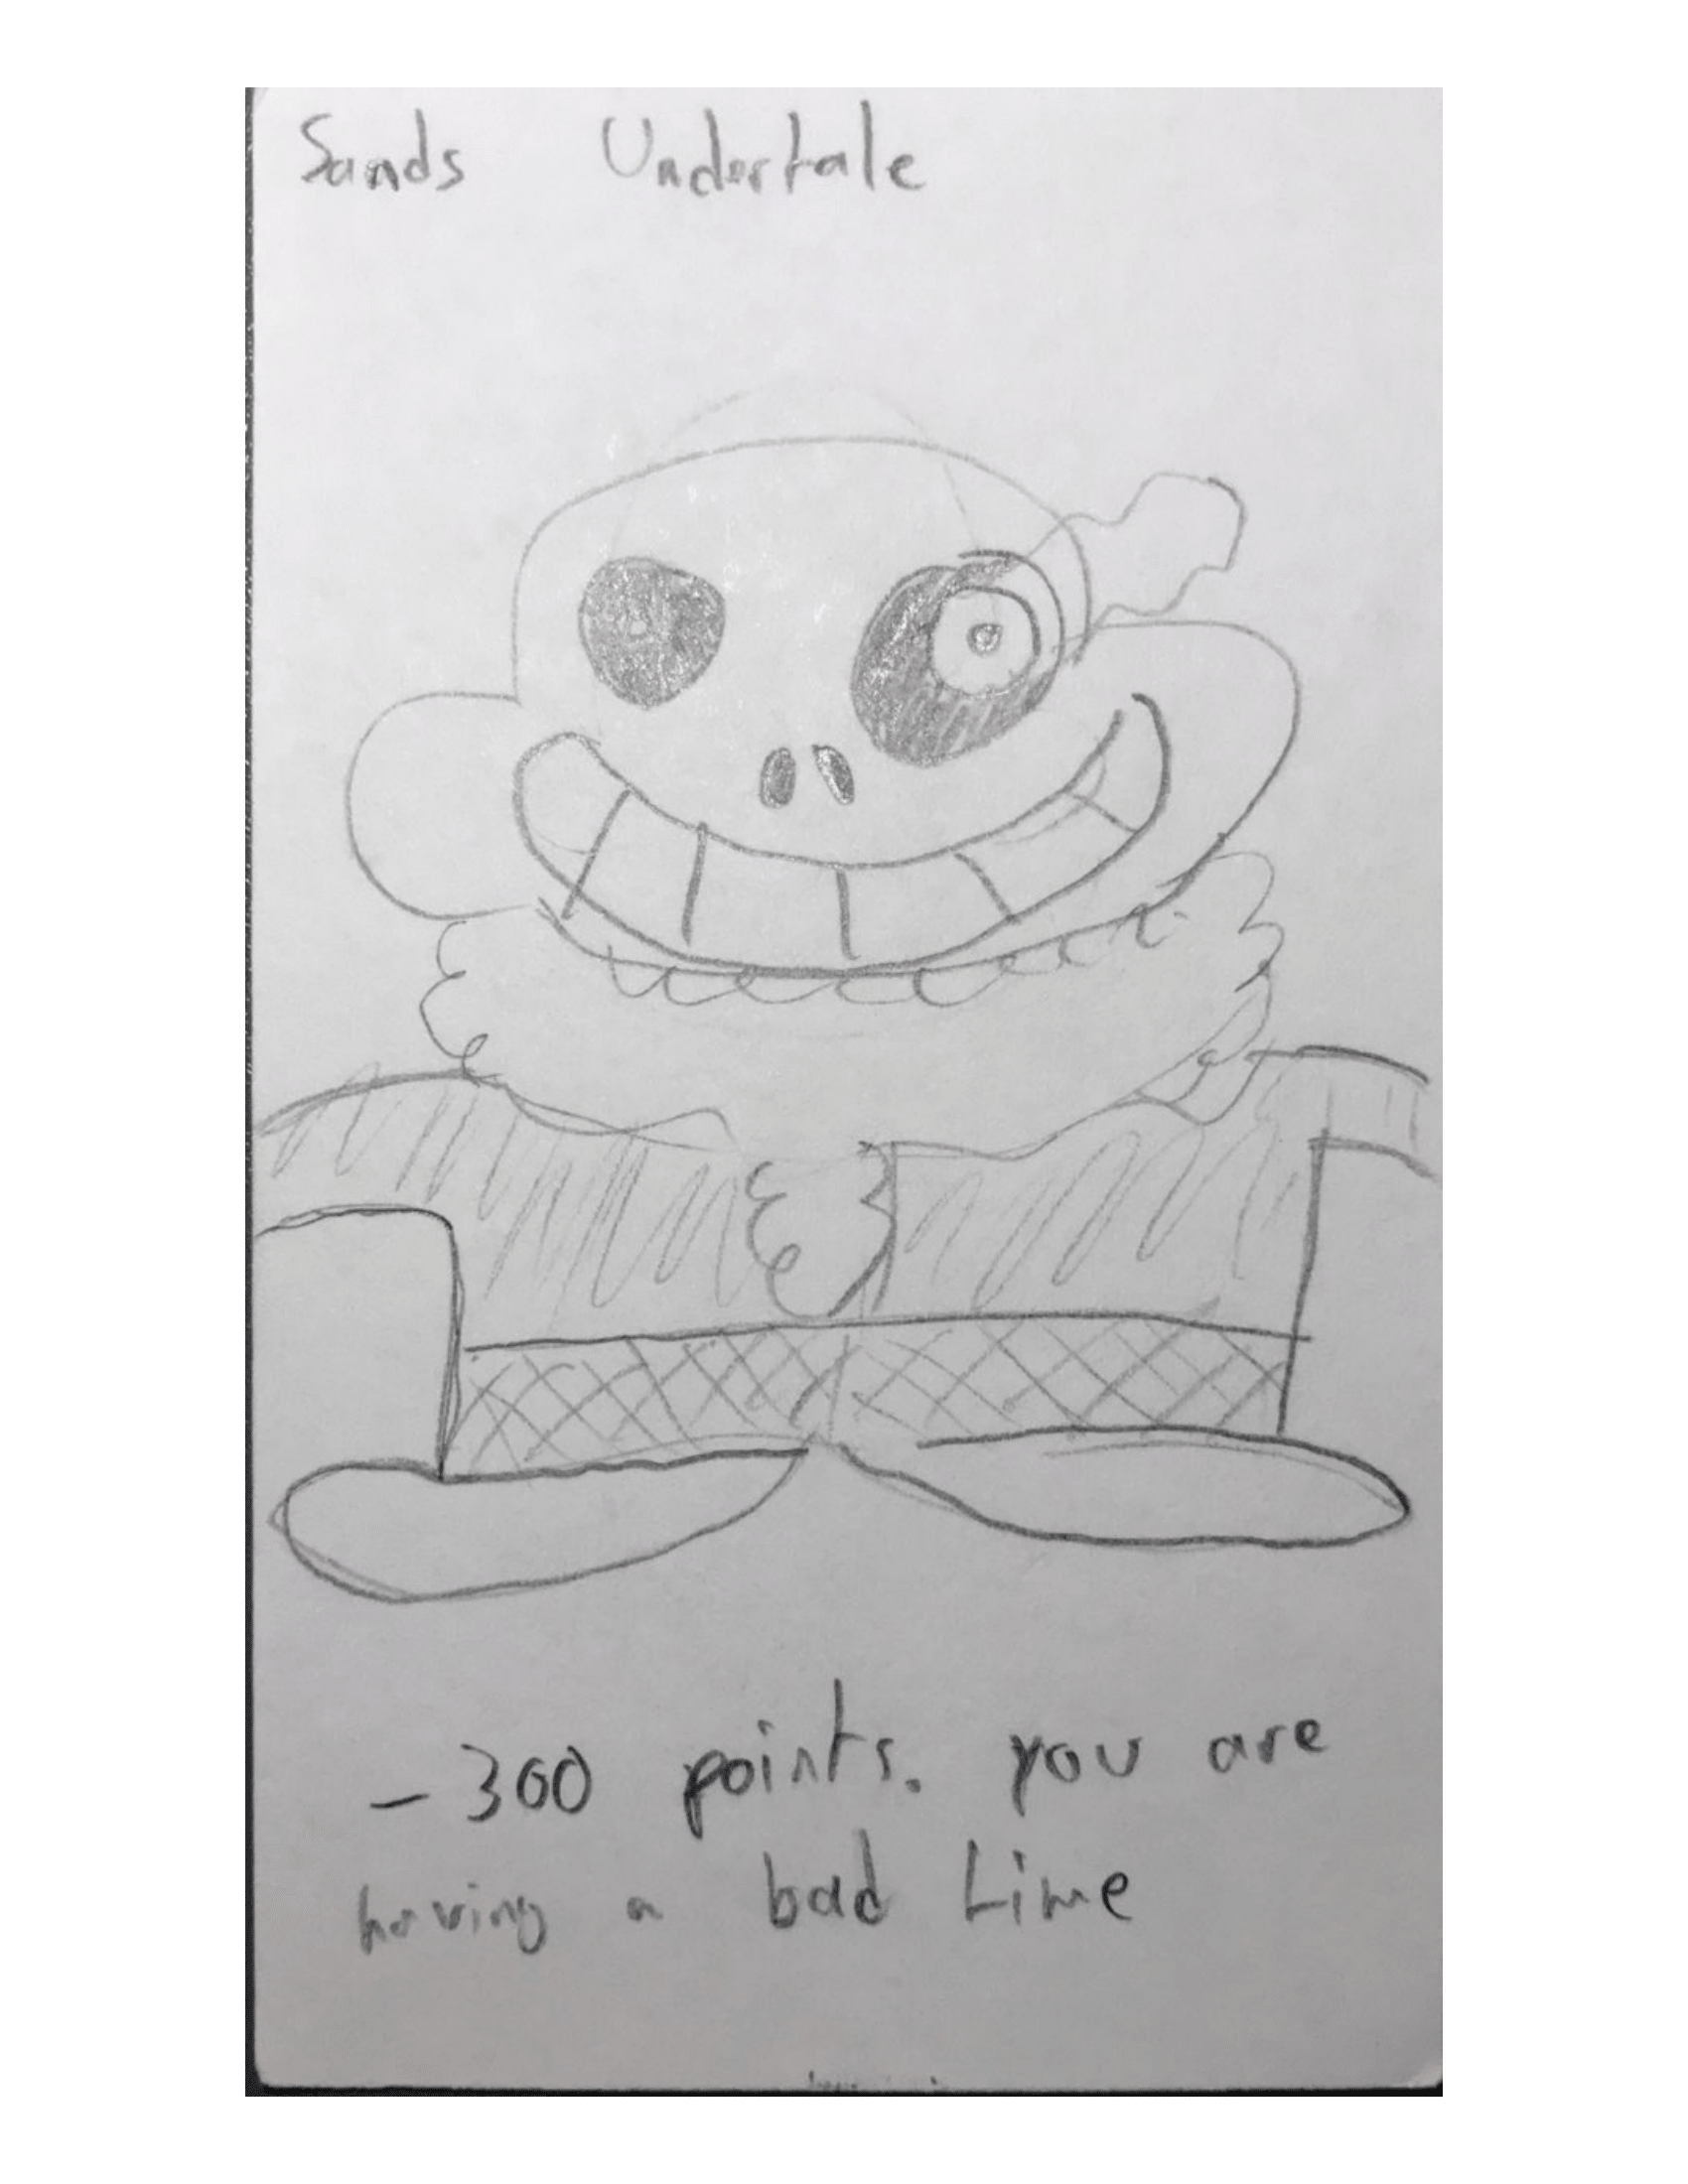 Sands Undertale
- 300 points. you are
having a bad time